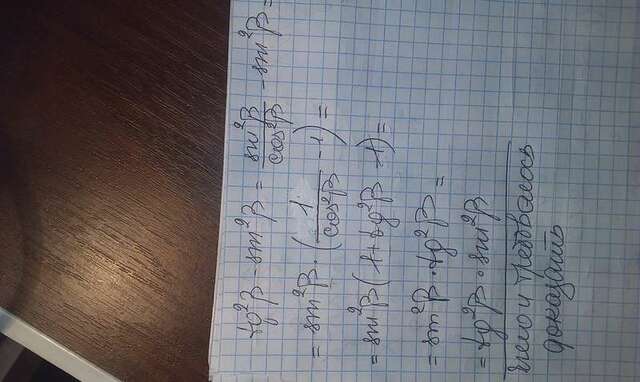 tg²β - sin²β = sin²β/cos²β - sin²β =
= sin²β · (1/cos²β - 1) =
= sin²β (1 + tg²β - 1) =
= sin²β · tg²β =
= tg²β · sin²β
чего и требовалось
доказать